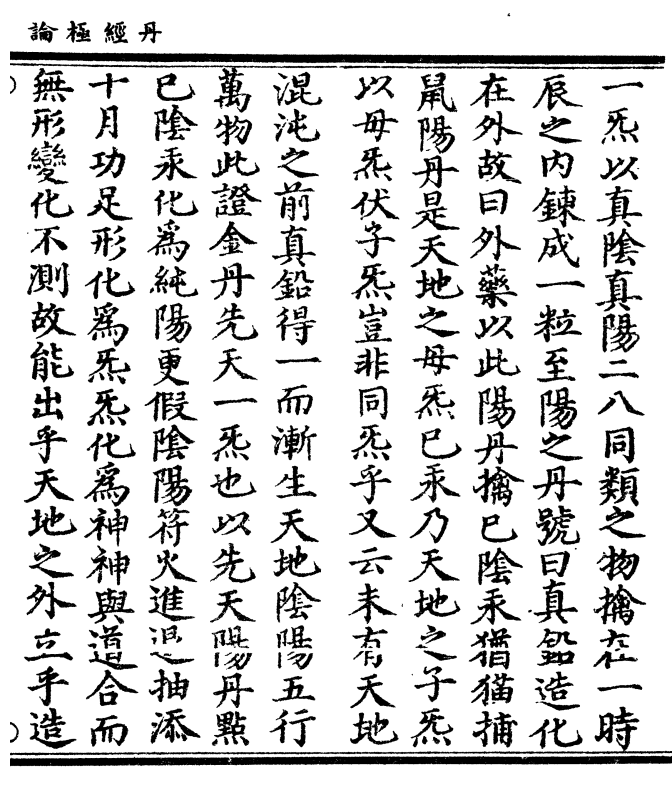 丹經極論
一炁以真陰真陽二八同類之物擒在一時
辰之內鍊成一粒至陽之丹號曰真鉛造化
在外故曰外藥以此陽丹擒己陰汞猶猫捕
鼠陽丹是天地之母炁已汞乃天地之子炁
以母炁伏子炁豈非同炁乎又云未有天地
混沌之前真鉛得一而漸生天地陰陽五行
萬物此證金丹先天一炁也以先天陽丹點
巳陰汞化為純陽更假陰陽符火進退抽添
十月功足形化為炁炁化為神神與道合而
無形變化不測故能出乎天地之外立乎造